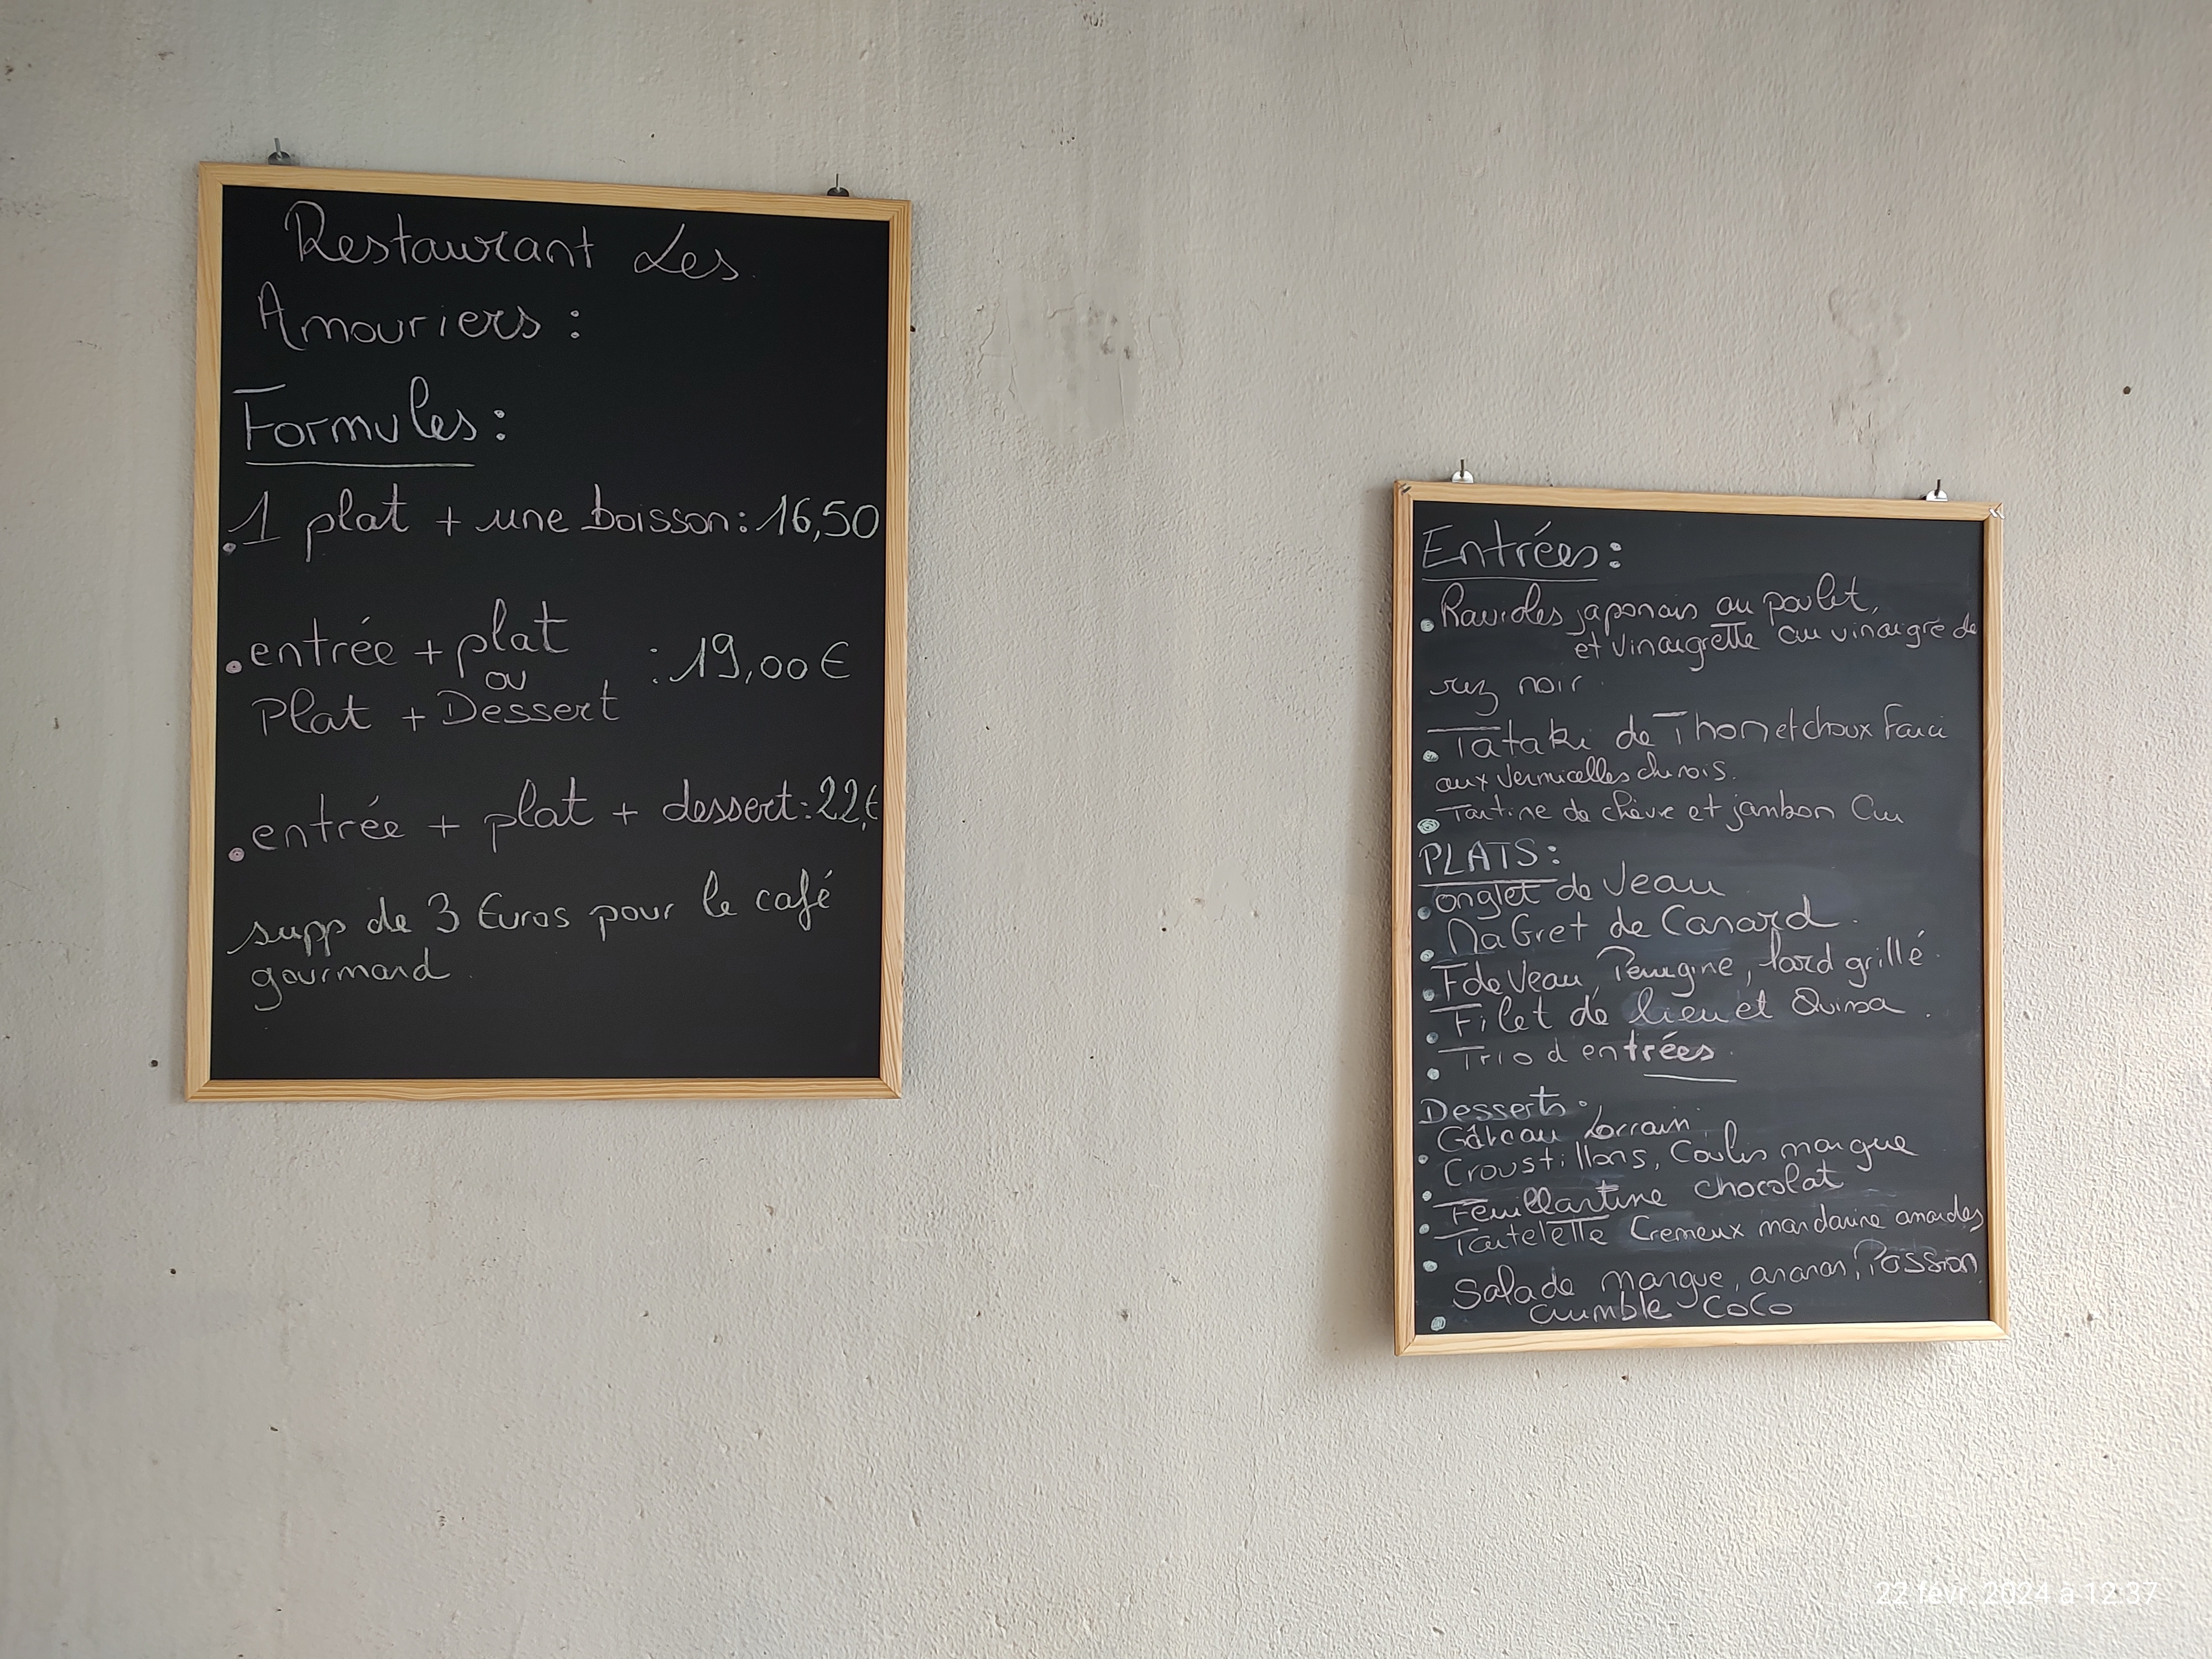 Restaurant Les
Amouriers :
Formules :
. 1 plat + une boisson : 16,50
. entrée + plat
ou
Plat + Dessert
: 19,00 €
. entrée + plat + dessert : 22,€
supp de 3 Euros pour le café
gourmand
Entrées :
. Ravioles japonais au poulet,
et vinaigrette au vinaigre de
riz noir.
. Tataki de Thon et choux Farci
aux vermicelles chinois.
. Tartine de chèvre et jambon Cru
PLATS :
. onglet de Veau
. MaGret de Canard.
. F de Veau, lard grillé.
. Filet de lieu et Quinoa.
. Trio d entrées.
Desserts :
. Gâteau Lorrain,
. Croustillons, Coulis mangue
. Feuillantine chocolat
. Tartelette Cremeux mandarine amandes
. Salade mangue, ananas, Passion,
crumble CoCo
22 févr. 2024 à 12:37